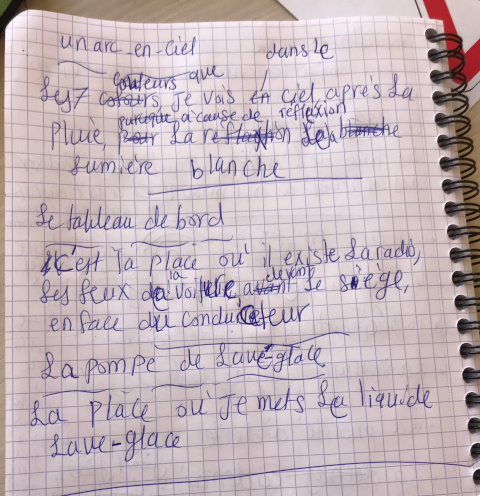 un arc-en-ciel dans le
couleurs que
Les 7 je vois ciel après la
parceque à cause de réflexion
Pluie, la de la
lumière blanche
Le tableau de bord
c'est la place où il existe la radio,
la devant
les feux de voiture le siège,
en face du conducteur
La pompe de lave-glace
La place où je mets le liquide
lave-glace